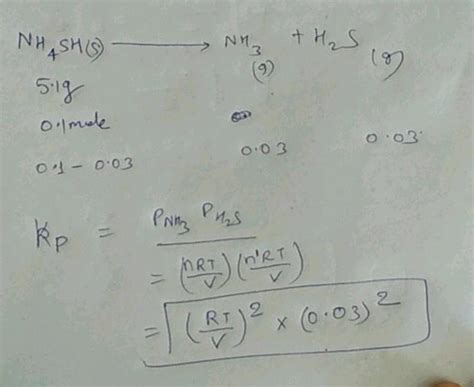 NH₄SH(s) ⟶ NH₃ (g) + H₂S (g)
5.1g
0.1mole
0.1 - 0.03 0.03 0.03
Kp = P_NH₃ P_H₂S
= (nRT/V) (n'RT/V)
= (RT/V)² × (0.03)²